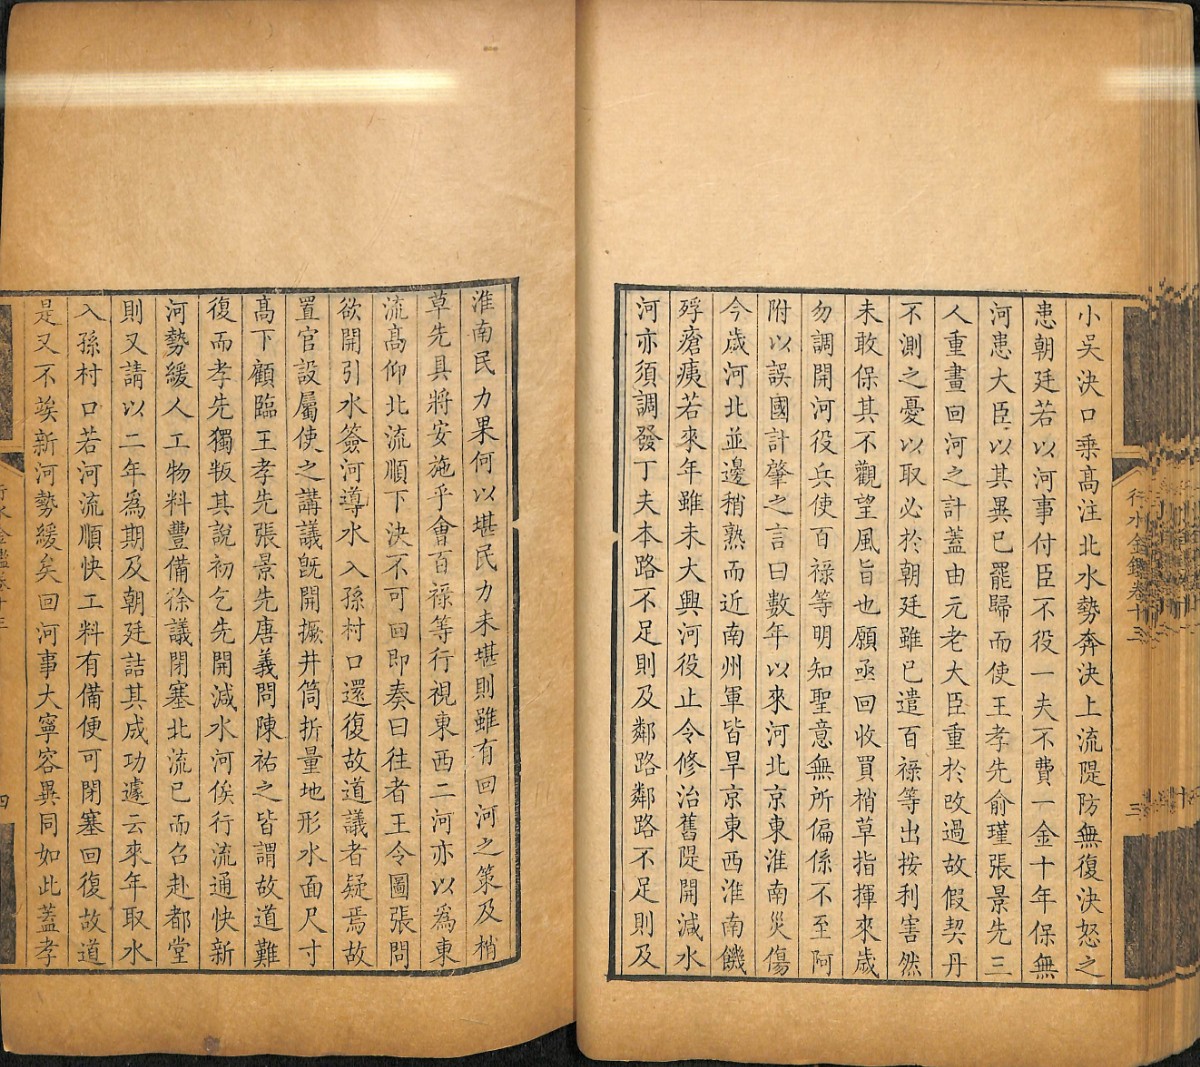 行水金鑑卷十三
三
小吳決口乘高注北水勢奔決上流隄防無復決怒之
患朝廷若以河事付臣不役一夫不費一金十年保無
河患大臣以其異已罷歸而使王孝先俞瑾張景先三
人重畫回河之計蓋由元老大臣重於攺過故假契丹
不測之憂以取必於朝廷雖已遣百祿等出按利害然
未敢保其不觀望風旨也願亟回收買梢草指揮來歲
勿調開河役兵使百祿等明知聖意無所偏係不至阿
附以誤國計肇之言曰數年以來河北京東淮南災傷
今歲河北並邊稍熟而近南州軍皆旱京東西淮南饑
殍瘡痍若來年雖未大興河役止令修治舊隄開減水
河亦須調發丁夫本路不足則及鄰路鄰路不足則及
淮南民力果何以堪民力未堪則雖有回河之策及梢
草先具將安施乎會百祿等行視東西二河亦以爲東
流高仰北流順下決不可回即奏曰往者王令圖張問
欲開引水簽河導水入孫村口還復故道議者疑焉故
置官設屬使之講議旣開撅井筒折量地形水面尺寸
高下顧臨王孝先張景先唐義問陳祐之皆謂故道難
復而孝先獨叛其說初乞先開減水河俟行流通快新
河勢緩人工物料豐備徐議閉塞北流已而召赴都堂
則又請以二年爲期及朝廷詰其成功遽云來年取水
入孫村口若河流順快工料有備便可閉塞回復故道
是又不竢新河勢緩矣回河事大寧容異同如此蓋孝
行水金鑑卷十三
四